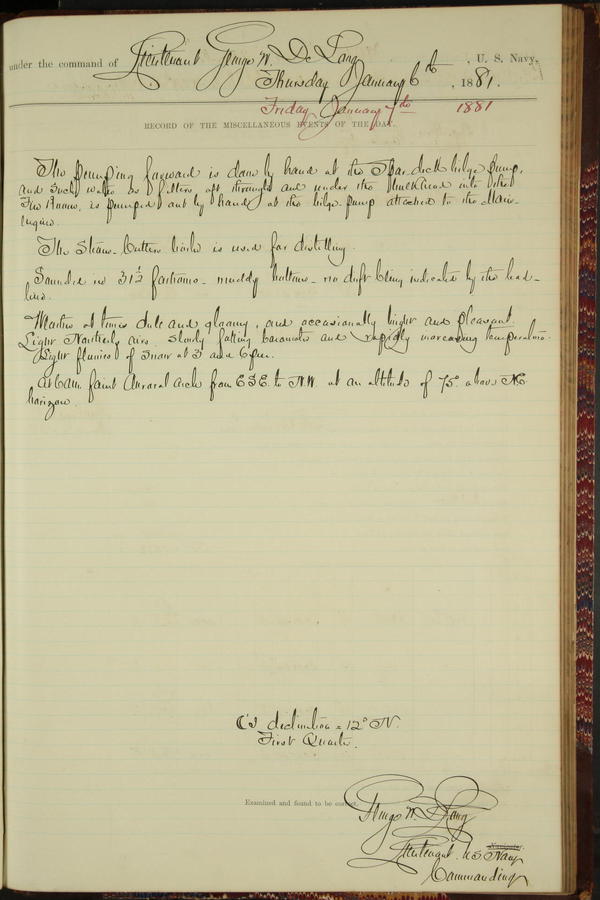 under the command of Lieutenant George W. De Long, U. S. Navy.
Thursday January 6th, 1881.
Friday January 7th 1881
RECORD OF THE MISCELLANEOUS EVENTS OF THE DAY.
The pumping forward is done by hand at the Spar-deck bilge pump,
and such water as filters aft through and under the bulkhead into the
Fire Room, is pumped out by hand at the bilge pump attached to the Main-
Engine.
The Steam-Cutters boiler is used for distilling.
Sounded in 31½ fathoms - muddy bottom - no drift being indicated by the lead-
line.
Weather at times dull and gloomy, and occasionally bright and pleasant.
Light Northerly airs. slowly falling barometer and rapidly increasing temperature.
Light flurries of Snow at 3 and 6 p.m.
At 6 a.m. faint Auroral arch from E.S.E. to N.W. at an altitude of 75° above the
horizon.
☾'s declination = 12° N.
First Quarter.
Examined and found to be correct.
George W. De Long
Lieutenant, U.S. Navy Navigator.
Commanding